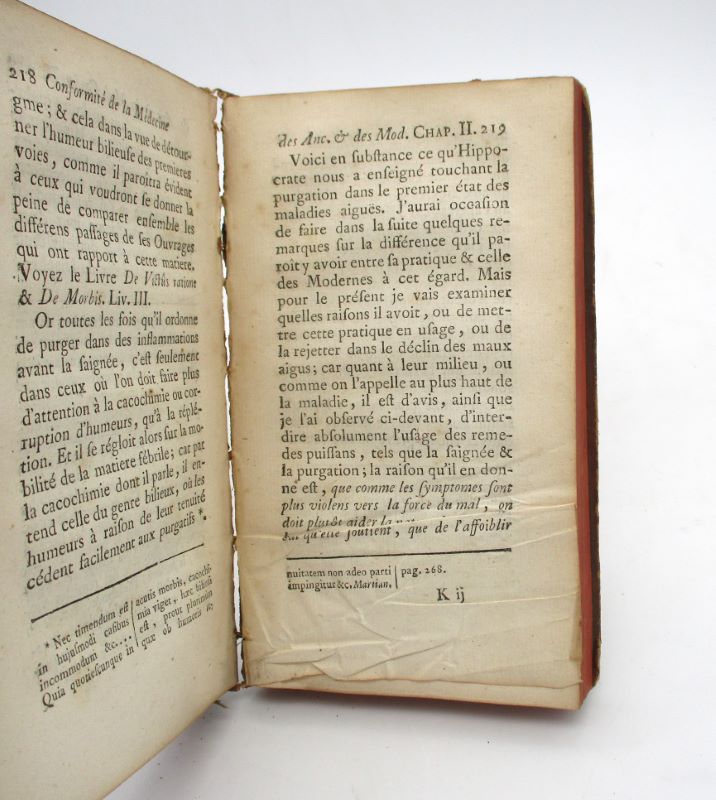 218 Conformité de la Médecine
gme ; & cela dans la vue de détour-
ner l'humeur bilieuse des premieres
voies, comme il paroîtra évident
à ceux qui voudront se donner la
peine de comparer ensemble les
différens passages de ses Ouvrages
qui ont rapport à cette matiere.
Voyez le Livre De Victûs ratione
& De Morbis. Liv. III.
Or toutes les fois qu'il ordonne
de purger dans des inflammations
avant la saignée, c'est seulement
dans ceux où l'on doit faire plus
d'attention à la cacochimie ou cor-
ruption d'humeurs, qu'à la réplé-
tion. Et il se régloit alors sur la mo-
bilité de la matiere fébrile; car par
la cacochimie dont il parle, il en-
tend celle du genre bilieux, où les
humeurs à raison de leur tenuité
cédent facilement aux purgatifs *.
* Nec timendum est
in hujusmodi casibus
incommodum &c....
Quia quotiescunque in
acutis morbis, cacochi-
mia viget, hæc biliosa
est, prout plurimùm
quæ ob humoris te-
des Anc. & des Mod. CHAP. II. 219
Voici en substance ce qu'Hippo-
crate nous a enseigné touchant la
purgation dans le premier état des
maladies aiguës. J'aurai occasion
de faire dans la suite quelques re-
marques sur la différence qu'il pa-
roît y avoir entre sa pratique & celle
des Modernes à cet égard. Mais
pour le présent je vais examiner
quelles raisons il avoit, ou de met-
tre cette pratique en usage, ou de
la rejetter dans le déclin des maux
aigus; car quant à leur milieu, ou
comme on l'appelle au plus haut de
la maladie, il est d'avis, ainsi que
je l'ai observé ci-devant, d'inter-
dire absolument l'usage des reme-
des puissans, tels que la saignée &
la purgation; la raison qu'il en don-
ne est, que comme les symptomes sont
plus violens vers la force du mal, on
doit plutôt aider la
qu'elle soutient, que de l'affoiblir
nuitatem non adeo parti
impingitur &c. Martian.
pag. 268.
K ij